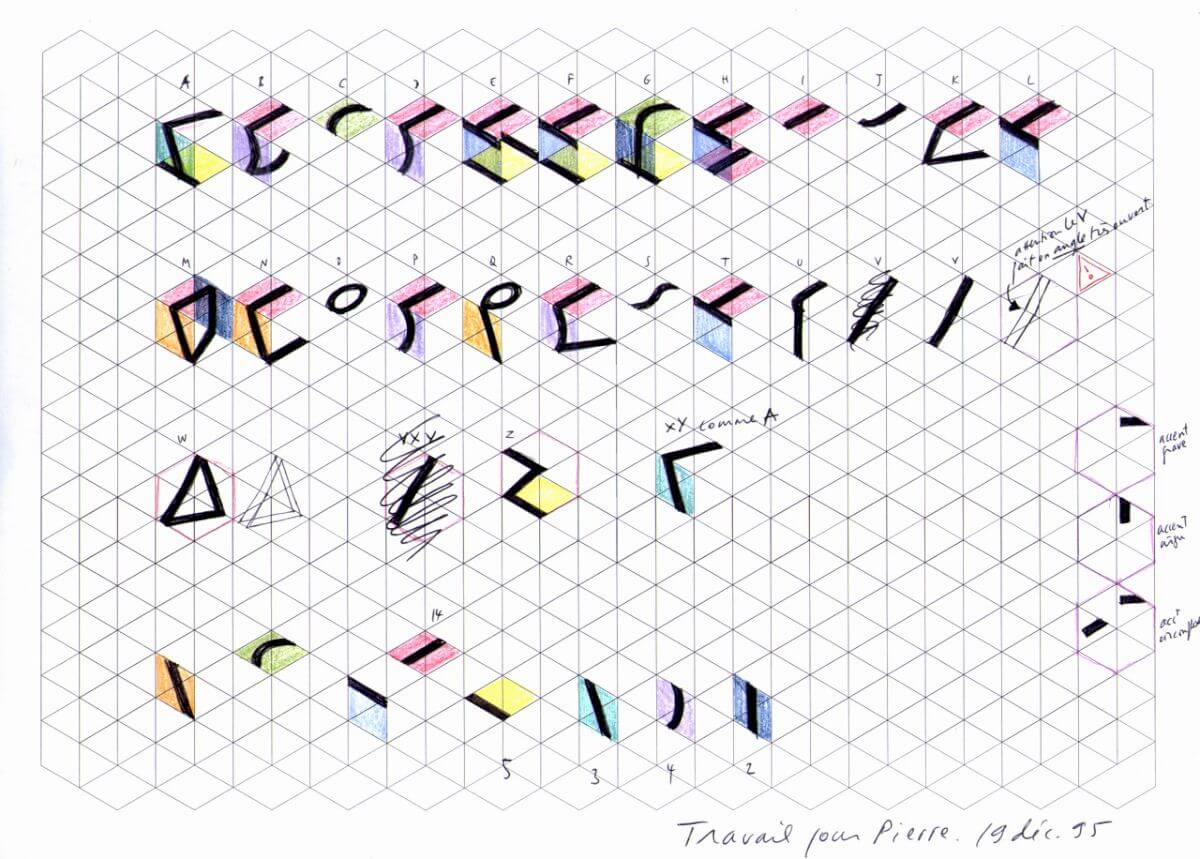 A B C D E F G H I J K L
attention le V
fait un angle très ouvert
M N O P Q R S T U V V
!
W XXY Z XY comme A
accent
grave
accent
aigu
acct
14
5 3 4 2
Travail pour Pierre. 19 déc. 95